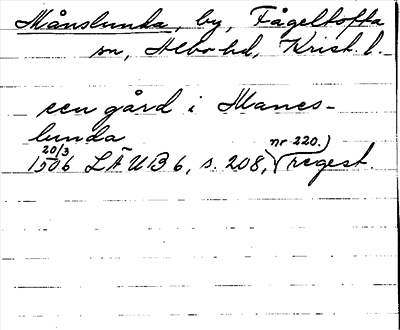 Månslunda, by, Fågeltofta
sn, Albo hd, Krist. l.
een gård i Manes-
lunda
20/3 nr 220.)
1506 LÄUB 6, s. 208, regest.